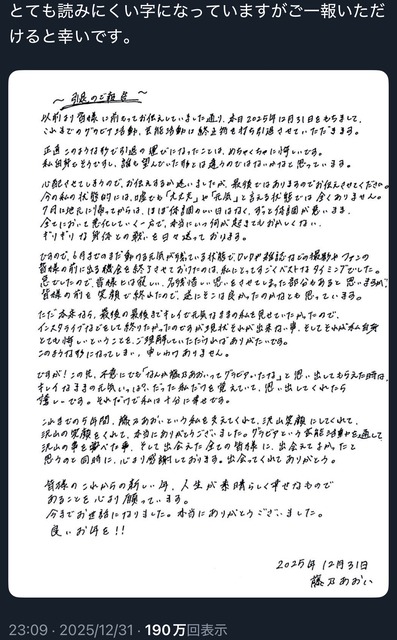 とても読みにくい字になっていますがご一報いただ
けると幸いです。
～ 引退のご報告 ～
以前より皆様に前もってお伝えしていました通り、本日2025年12月31日をもちまして、
これまでのグラビア活動、芸能活動は終止符を打ち引退させていただきます。
正直このような形で引退の運びになったことは、めちゃくちゃに悔しいです。
私自身もそうですし、誰も望んでいた形とは違うのではないかなと思っています。
心配させてしまうので、お伝えするか迷いましたが、最後ではありますのでお伝えさせてください。
今の私の状態的には、嘘でも「大丈夫」や「元気」と言える状態では全くありません。
7月に地元に帰ってからは、ほぼ体調のいい日はなく、ずっと体調が悪いまま、
全てにおいて悪化していく一方で、本当にいつ何が起きてもおかしくない、
ギリギリな身体との戦いを日々送っております。
ですので、6月までのまだ動ける元気が残っている状態で、DVDや雑誌などの撮影やファンの
皆様の前に出る機会を終了させておけたのは、私にとってすごくベストなタイミングでした。
急でしたので、皆様には寂しい、名残惜しい思いをさせてしまった部分もあると思いますが、
皆様の前を笑顔で終われたので、逆にそこは良かったのかなとも思っています。
ただ本来なら、最後の最後までキレイで元気なままの私を見せていたかったので、
インスタライブなどもして終りたかったのですが現状それが出来ない事、そしてそれが私自身
とても悔しいということを、ご理解していただければありがたいです。
このような形になってしまい、申しわけありません。
ですが！この先、不意にでも「なんか藤乃あおいってグラビアいたなぁ」と思い出してもらえた時は、
キレイなままの元気いっぱい？だった私だけを覚えていて、思い出してくれたら
嬉しーです。それだけで私は十分に幸せです。
これまでの5年間、藤乃あおいという私を支えてくれて、沢山笑顔にしてくれて、
沢山の笑顔をくれて、本当にありがとうございました。グラビアという芸能活動を通して
沢山の事を学べた事、そして出会えた全ての皆様に、出会えてよかったと
思うのと同時に、心より感謝しております。出会ってくれてありがとう。
皆様のこれからの新しい年、人生が素晴らしく幸せなもので
あることを心より願っています。
今までお世話になりました。本当にありがとうございました。
良いお年を！！
2025年12月31日
藤乃あおい
23:09 · 2025/12/31 · 190万回表示